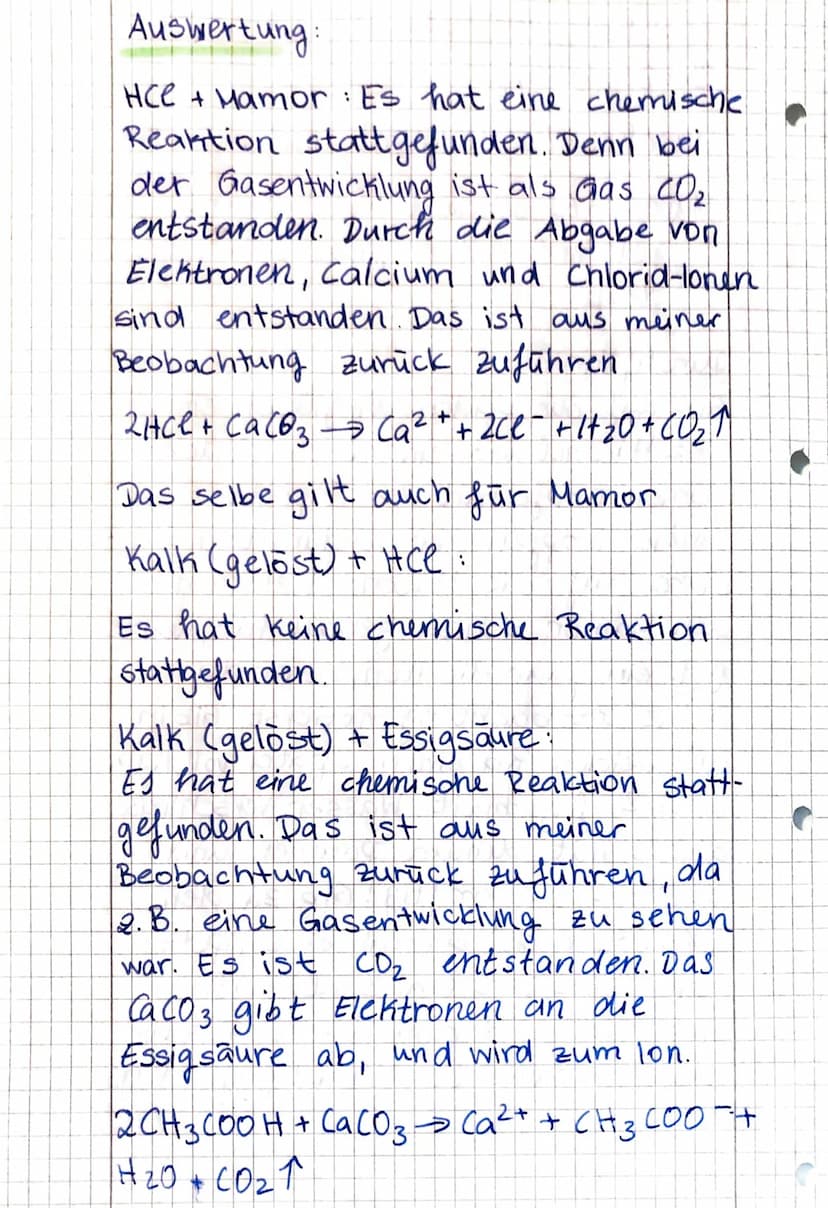 Auswertung:
HCl + Mamor : Es hat eine chemische
Reaktion stattgefunden. Denn bei
der Gasentwicklung ist als Gas CO₂
entstanden. Durch die Abgabe von
Elektronen, Calcium und Chlorid-Ionen
sind entstanden. Das ist aus meiner
Beobachtung zurück zuführen
2HCl + CaCO₃ → Ca²⁺ + 2Cl⁻ + H₂O + CO₂↑
Das selbe gilt auch für Mamor
Kalk (gelöst) + HCl :
Es hat keine chemische Reaktion
stattgefunden.
Kalk (gelöst) + Essigsäure:
Es hat eine chemische Reaktion statt-
gefunden. Das ist aus meiner
Beobachtung zurück zuführen, da
z.B. eine Gasentwicklung zu sehen
war. Es ist CO₂ entstanden. Das
CaCO₃ gibt Elektronen an die
Essigsäure ab, und wird zum Ion.
2CH₃COOH + CaCO₃ → Ca²⁺ + CH₃COO⁻ +
H₂O + CO₂↑